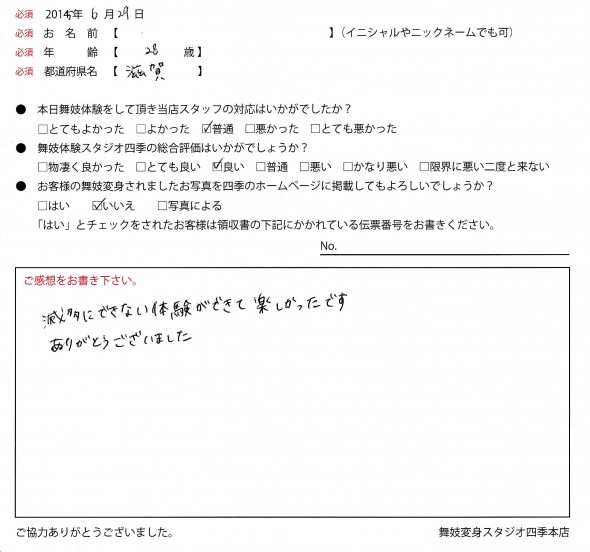 必須 2015年 6 月 29 日
必須 お 名 前 【 】（イニシャルやニックネームでも可）
必須 年 齢 【 28 歳】
必須 都道府県名 【 滋賀 】
● 本日舞妓体験をして頂き当店スタッフの対応はいかがでしたか？
□とてもよかった □よかった ☑普通 □悪かった □とても悪かった
● 舞妓体験スタジオ四季の総合評価はいかがでしょうか？
□物凄く良かった □とても良い ☑良い □普通 □悪い □かなり悪い □限界に悪い二度と来ない
● お客様の舞妓変身されましたお写真を四季のホームページに掲載してもよろしいでしょうか？
□はい ☑いいえ □写真による
「はい」とチェックをされたお客様は領収書の下記にかかれている伝票番号をお書きください。
No.
ご感想をお書き下さい。
滅多にできない体験ができて楽しかったです
ありがとうございました
ご協力ありがとうございました。 舞妓変身スタジオ四季本店